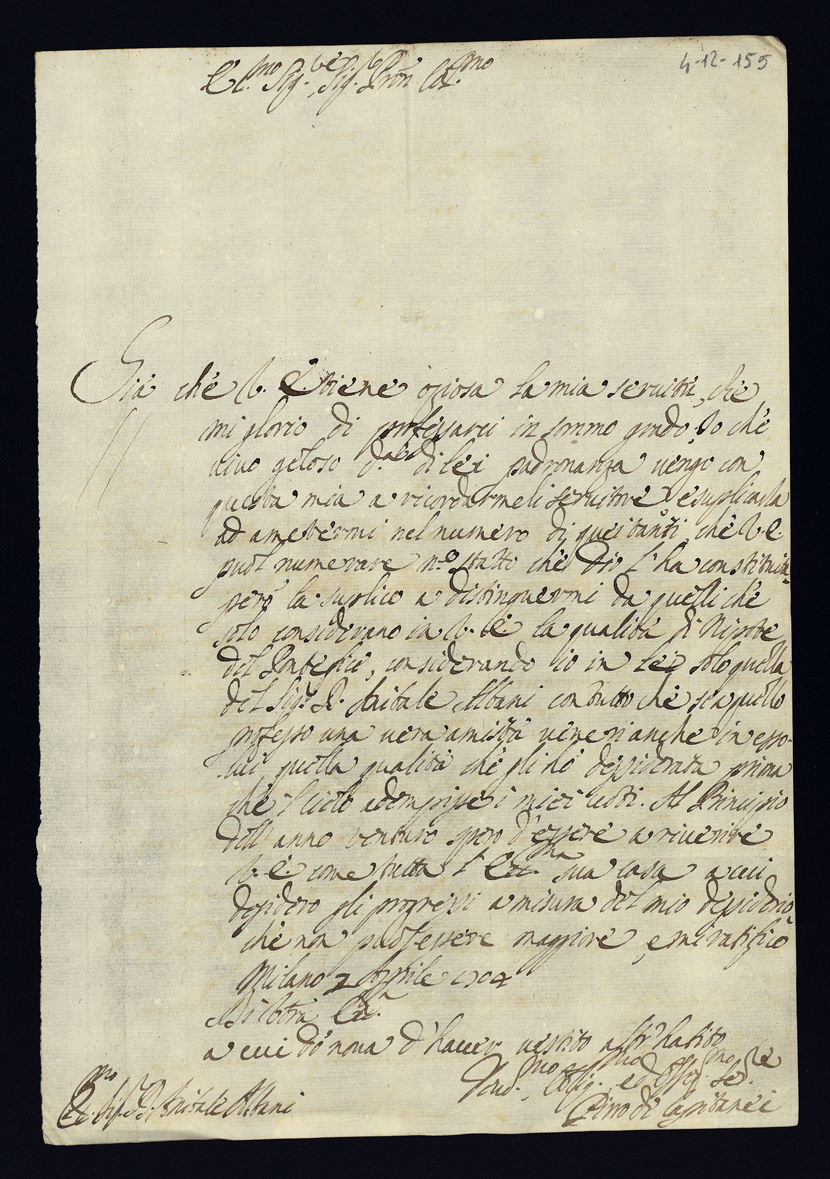 4-12-155
Ecc.mo Sig.re Sig.r Pron Col.mo
Già che V. E. tiene oziosa la mia servitù, che
mi glorio di professarci in sommo grado. Io che
vivo geloso di lei padronanza vengo con
questa mia a ricordarmeli servitore, e suplicarla
ad ametermi nel numero di questi tanti che V. E.
puol numerare stato che Dio l'ha constituita
però la suplico a distinguermi da quelli che
solo considerano in V. E. la qualità di Nipote
del Pontefice, considerando io in Lei solo quella
del Sig.r D. Anibale Albani con tutto che se a quello
professo una vera amistà venerì anche in esso
lui quella qualità che gli hò desiderata prima
che 'l cielo adempisse i miei voti. Al Principio
dell'anno venturo spero d'essere a riverire
V. E. come tutta l'Ecc.ma sua casa a cui
desidero gli progressi a misura del mio desiderio
che non puol essere maggiore, e mi ratifico
Milano 2 Aprile 1704
Di Vostra Ecc.a
a cui dò nova d'havere vestito altr'habito
Ecc.mo Sig.r D. Anibale Albani
Um.mo Oblig.mo ed Osseq.mo Ser.re
Pirro de Capitanei